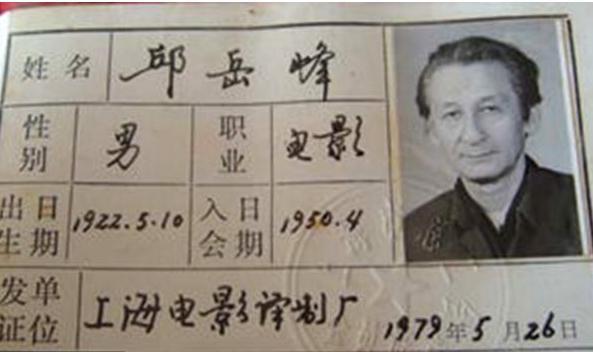 姓名 邱岳峰
性别 男 职业 电影
出生日期 1922.5.10 入会日期 1950.4
发证单位 上海电影译制厂
1979年5月26日